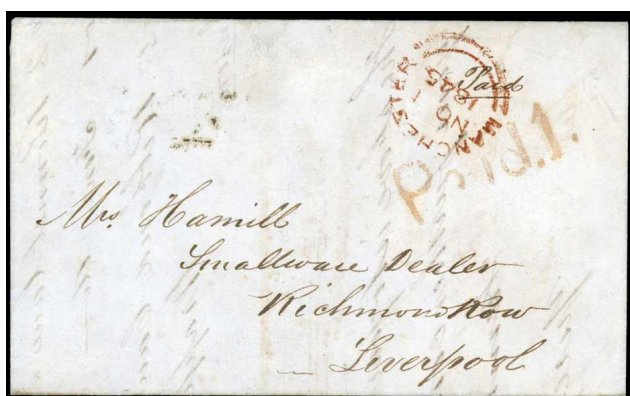 Paid
MANCHESTER
NO 7
1845
Paid.1.
Mrs. Hamill
Smallware Dealer
Richmond Row
Liverpool